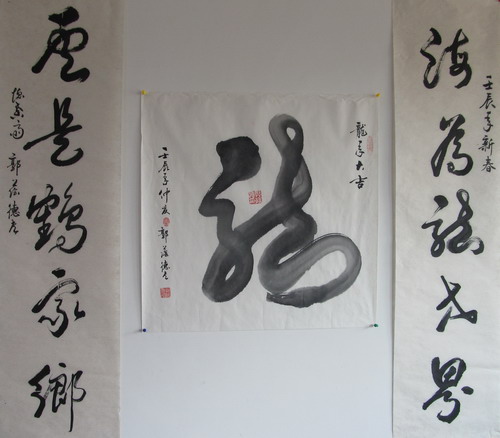 壬辰年新春
海為龍世界
龍年大吉
龍
壬辰年仲 郭 德
雲是鶴家鄉
郭 德